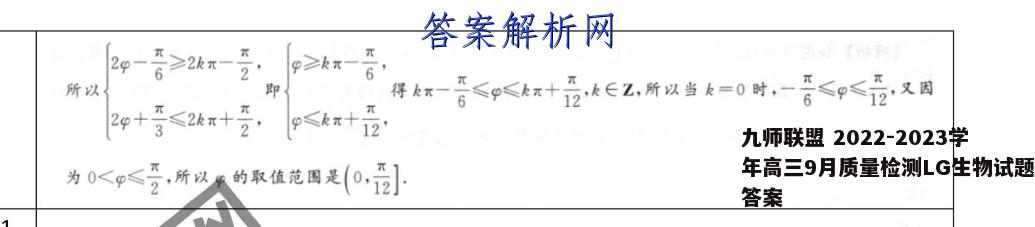 答案解析网
所以{2φ-π/6≥2kπ-π/2, 2φ+π/3≤2kπ+π/2, 即{φ≥kπ-π/6, φ≤kπ+π/12, 得kπ-π/6≤φ≤kπ+π/12,k∈Z,所以当k=0时,-π/6≤φ≤π/12,又因
为0<φ≤π/2,所以φ的取值范围是(0,π/12].
九师联盟 2022-2023学
年高三9月质量检测LG生物试题
答案
1